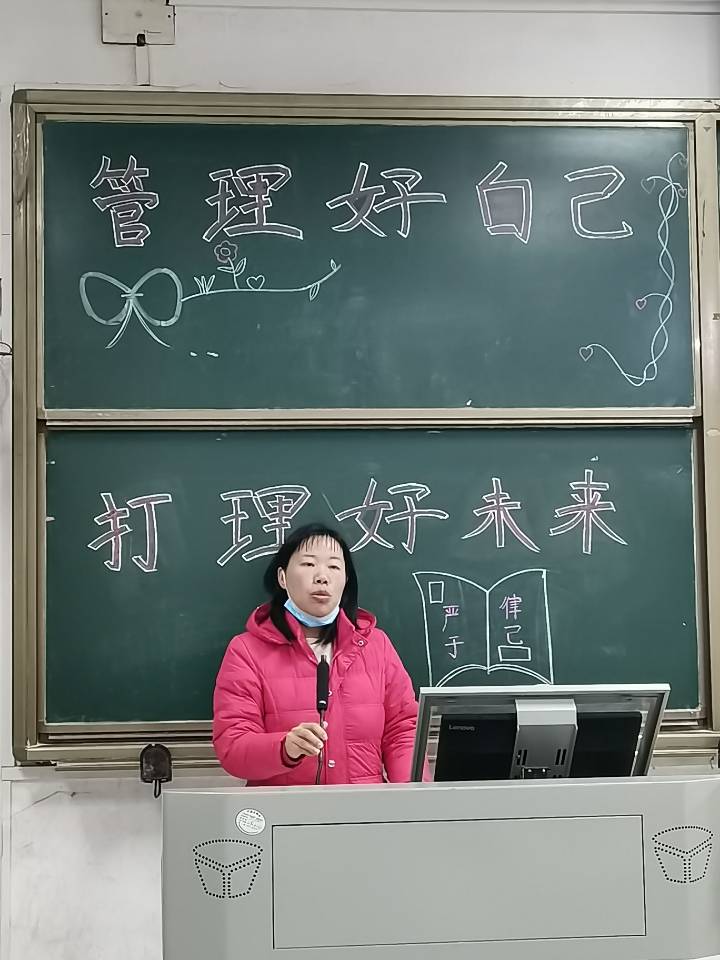 管理好自己
打理好未来
严于
律己
Lenovo